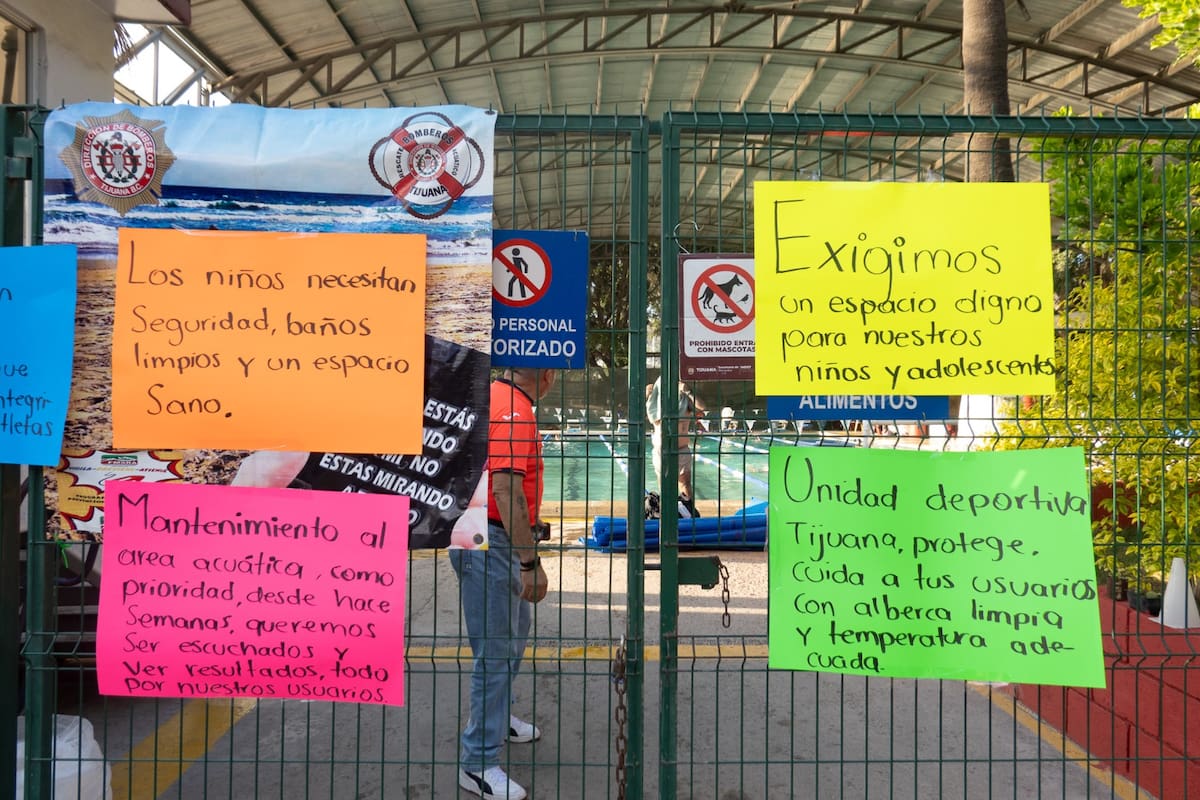 DIRECCION DE BOMBEROS
TIJUANA B.C.
BOMBEROS
RESCATE ACUÁTICO
TIJUANA
Los niños necesitan
Seguridad, baños
limpios y un espacio
Sano.
PERSONAL
PROHIBIDO
CON MASCOTAS
TIJUANA
Exigimos
un espacio digno
para nuestros
niños y adolescentes
ALIMENTOS
ESTÁS
NO
ESTÁS MIRANDO
Mantenimiento al
area acuática, como
prioridad, desde hace
Semanas, queremos
Ser escuchados y
Ver resultados, todo
por nuestros usuarios.
Unidad deportiva
Tijuana, protege,
cuida a tus usuarios
con alberca limpia
y temperatura ade-
cuada.